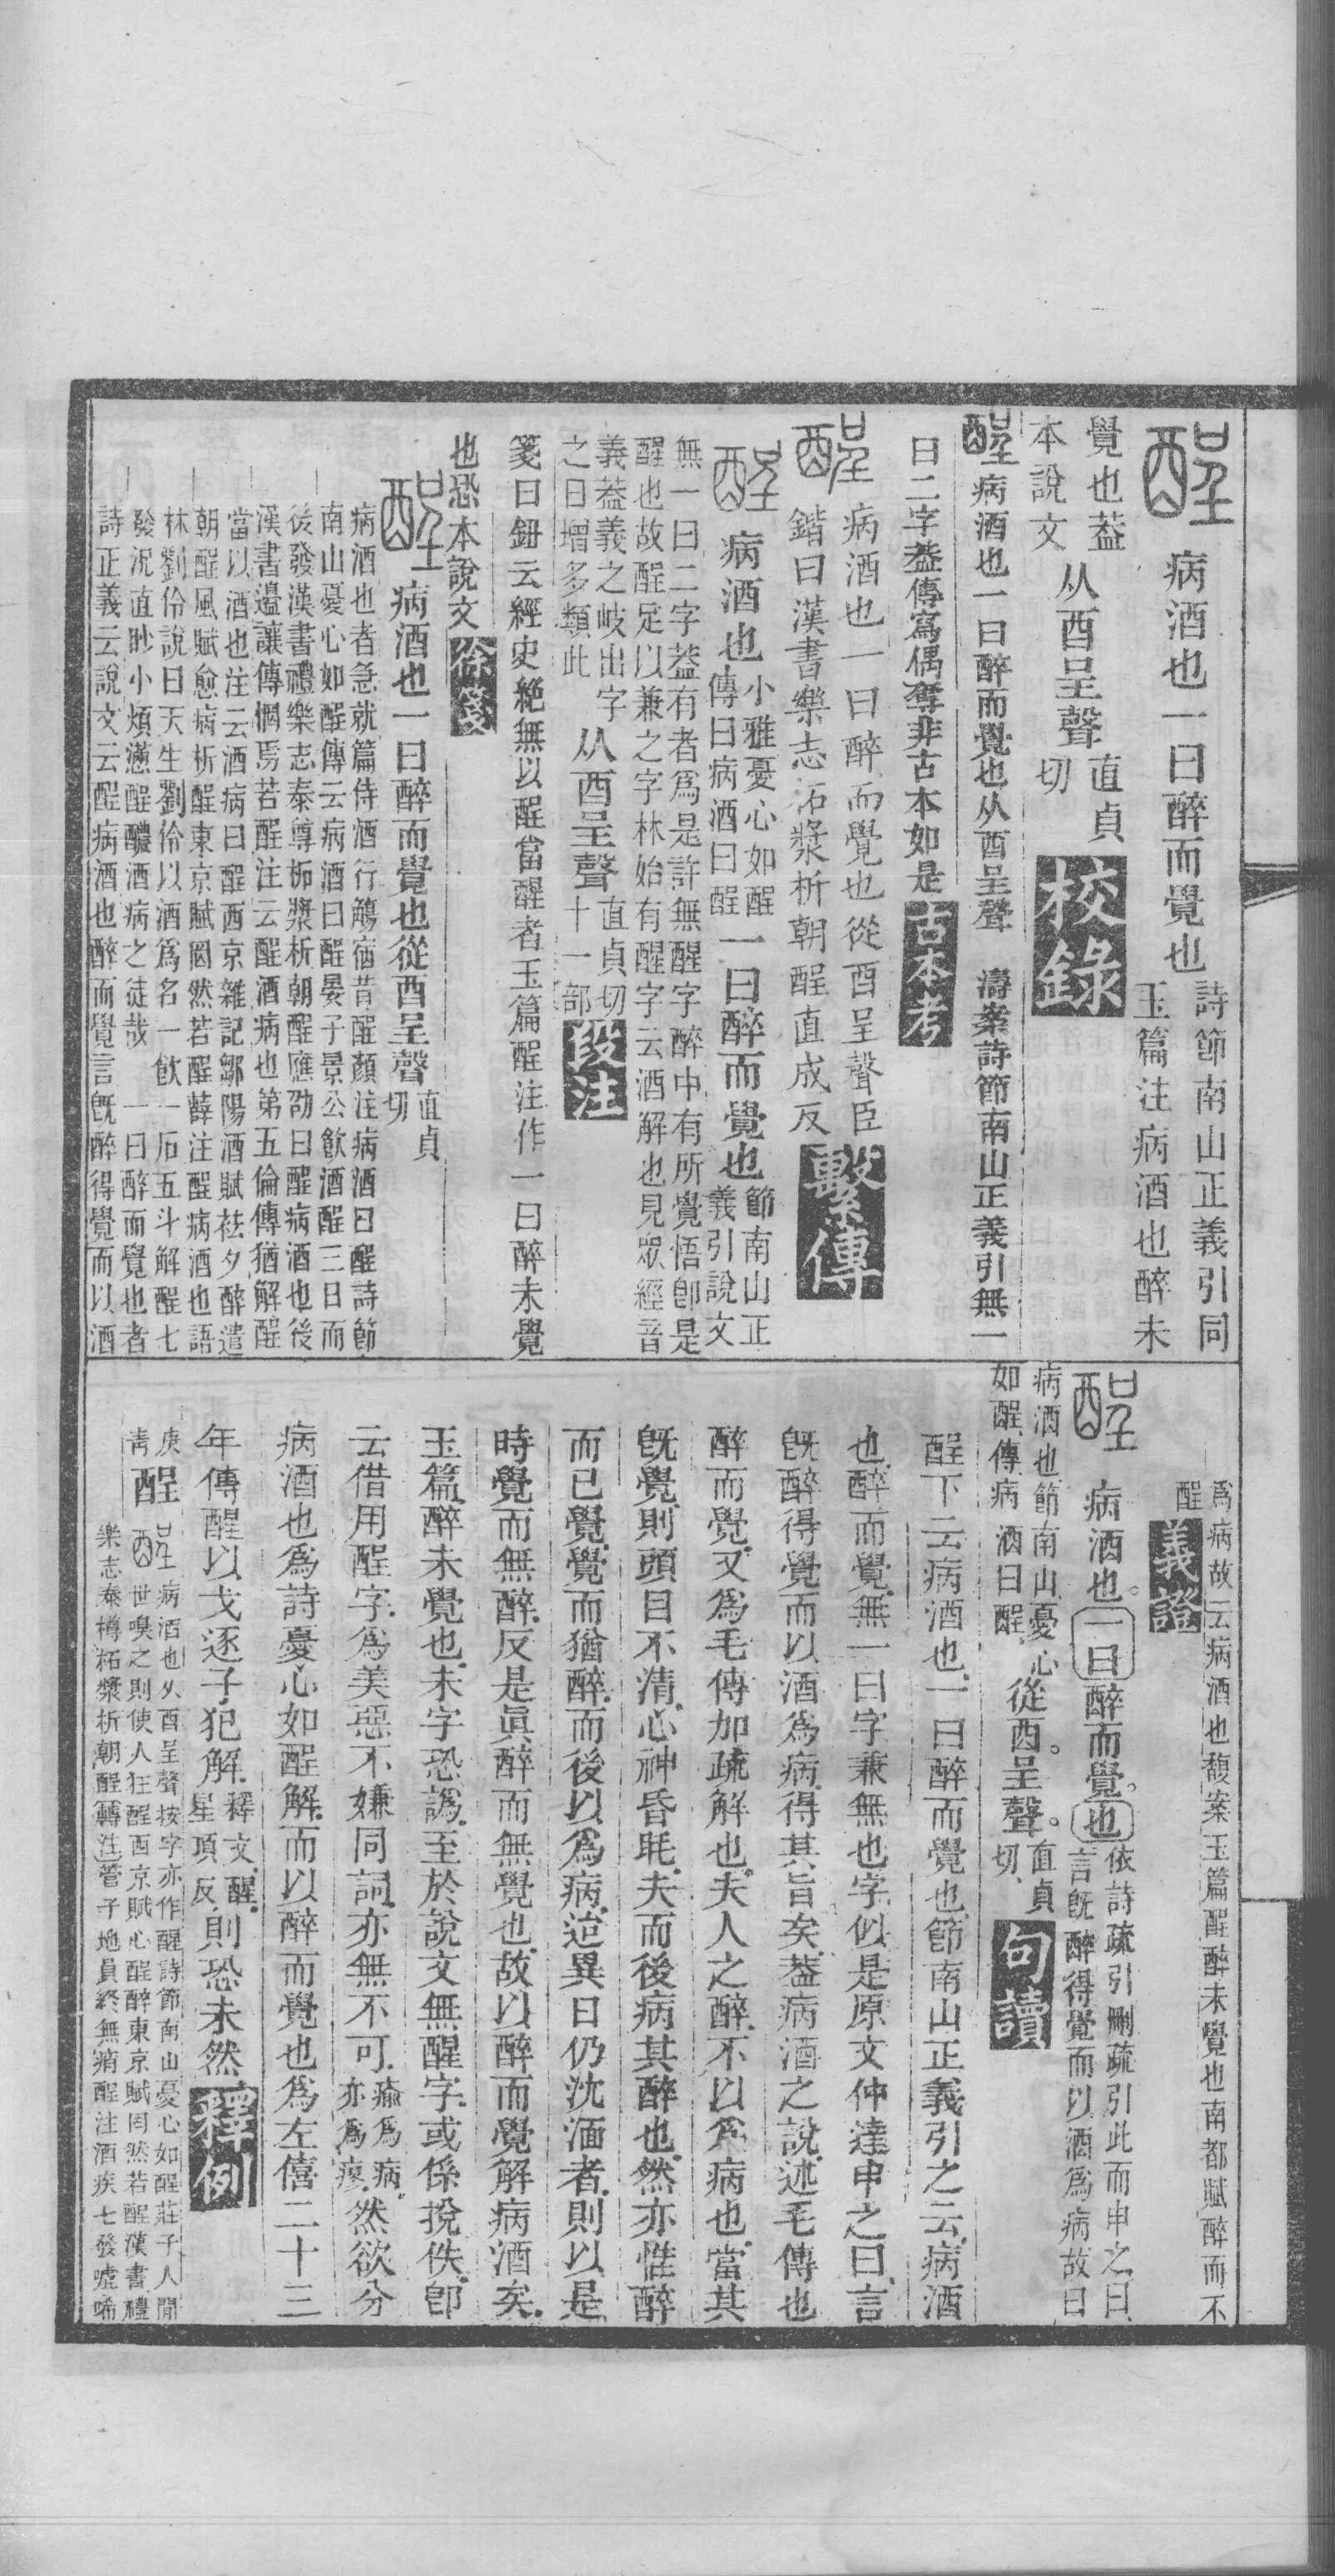 病酒也一曰醉而覺也
詩節南山正義引同
玉篇注病酒也醉未
覺也葢
本說文
从酉呈聲
直貞
切
校錄
醒病酒也一曰醉而覺也从酉呈聲 濤案詩節南山正義引無一
曰二字葢傳寫偶奪非古本如是
古本考
病酒也一曰醉而覺也從酉呈聲臣
鍇曰漢書樂志柘漿析朝酲直成反
繫傳
病酒也
小雅憂心如酲
傳曰病酒曰酲
一曰醉而覺也
節南山正
義引說文
無一曰二字葢有者爲是許無醒字醉中有所覺悟卽是
醒也故酲足以兼之字林始有醒字云酒解也見眾經音
義葢義之岐出字
之日增多類此
从酉呈聲
直貞切
十一部
段注
箋曰鈕云經史絶無以酲當醒者玉篇酲注作一曰醉未覺
也恐本說文
徐箋
病酒也一曰醉而覺也從酉呈聲
直貞
切
病酒也者急就篇侍酒行觴宿昔酲顏注病酒曰酲詩節
南山憂心如酲傳云病酒曰酲晏子景公飮酒酲三日而
後發漢書禮樂志泰尊柘漿析朝酲應劭曰酲病酒也後
漢書邉讓傳惘焉若酲注云酲酒病也第五倫傳猶解酲
當以酒也注云酒病曰酲西京雜記鄒陽酒賦袪夕醉遣
朝酲風賦愈病析酲東京賦罔然若酲薛注酲病酒也語
林劉伶說曰天生劉伶以酒爲名一飮一石五斗解酲七
發況直眇小煩懣酲醲酒病之徒哉 一曰醉而覺也者
詩正義云說文云酲病酒也醉而覺言旣醉得覺而以酒
爲病故云病酒也馥案玉篇酲醉未覺也南都賦醉而不
酲
義證
病酒也。一曰醉而覺。也
依詩疏引刪疏引此而申之曰
言旣醉得覺而以酒爲病故曰
病酒也節南山憂心
如酲傳病酒曰酲
從酉。呈聲。
直貞
切
句讀
酲下云病酒也一曰醉而覺也節南山正義引之云病酒
也醉而覺無一曰字兼無也字似是原文仲達申之曰言
旣醉得覺而以酒爲病得其旨矣葢病酒之說述毛傳也
醉而覺又爲毛傳加疏解也夫人之醉不以爲病也當其
旣覺則頭目不清心神昏眊夫而後病其醉也然亦惟醉
而已覺覺而猶醉而後以爲病迨異日仍沈湎者則以是
時覺而無醉反是眞醉而無覺也故以醉而覺解病酒矣
玉篇醉未覺也未字恐譌至於說文無醒字或係捝佚卽
云借用酲字爲美惡不嫌同詞亦無不可
瘉爲病
亦爲瘳
然欲分
病酒也爲詩憂心如酲解而以醉而覺也爲左僖二十三
年傳醒以戈逐子犯解
釋文醒
星頂反
則恐未然
釋例
庚
靑
酲
病酒也从酉呈聲按字亦作醒詩節南山憂心如酲莊子人閒
世嗅之則使人狂酲西京賦心酲醉東京賦罔然若酲漢書禮
樂志泰樽柘漿析朝酲轉注管子地員終無痟酲注酒疾七發噓唏